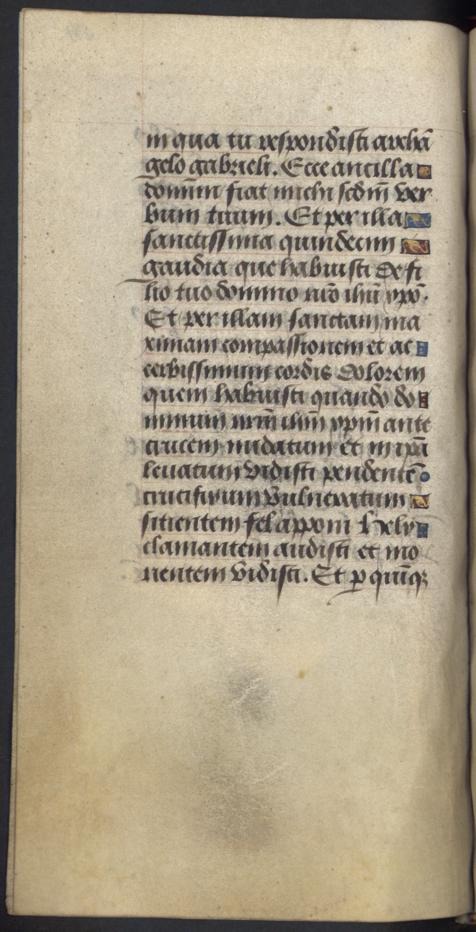 in qua tu respondisti archā
gelo gabrieli. Ecce ancilla
domini fiat michi scdm̄ ver
bum tuum. Et per illa
sanctissima quindecim
gaudia que habuisti de fi
lio tuo domino nr̄o ihū xp̄o.
Et per illam sanctam ma
ximam compassionem et ac
cerbissimum cordis dolorem
quem habuisti quando do
minum nrm̄ ihm̄ xpm̄ ante
crucem nudatum et in ip̄a
levatum vidisti pendentē
crucifixum vulneratum
sitientem fel apponi hely
clamantem audisti et mo
rientem vidisti. Et ꝑ quinqꝫ